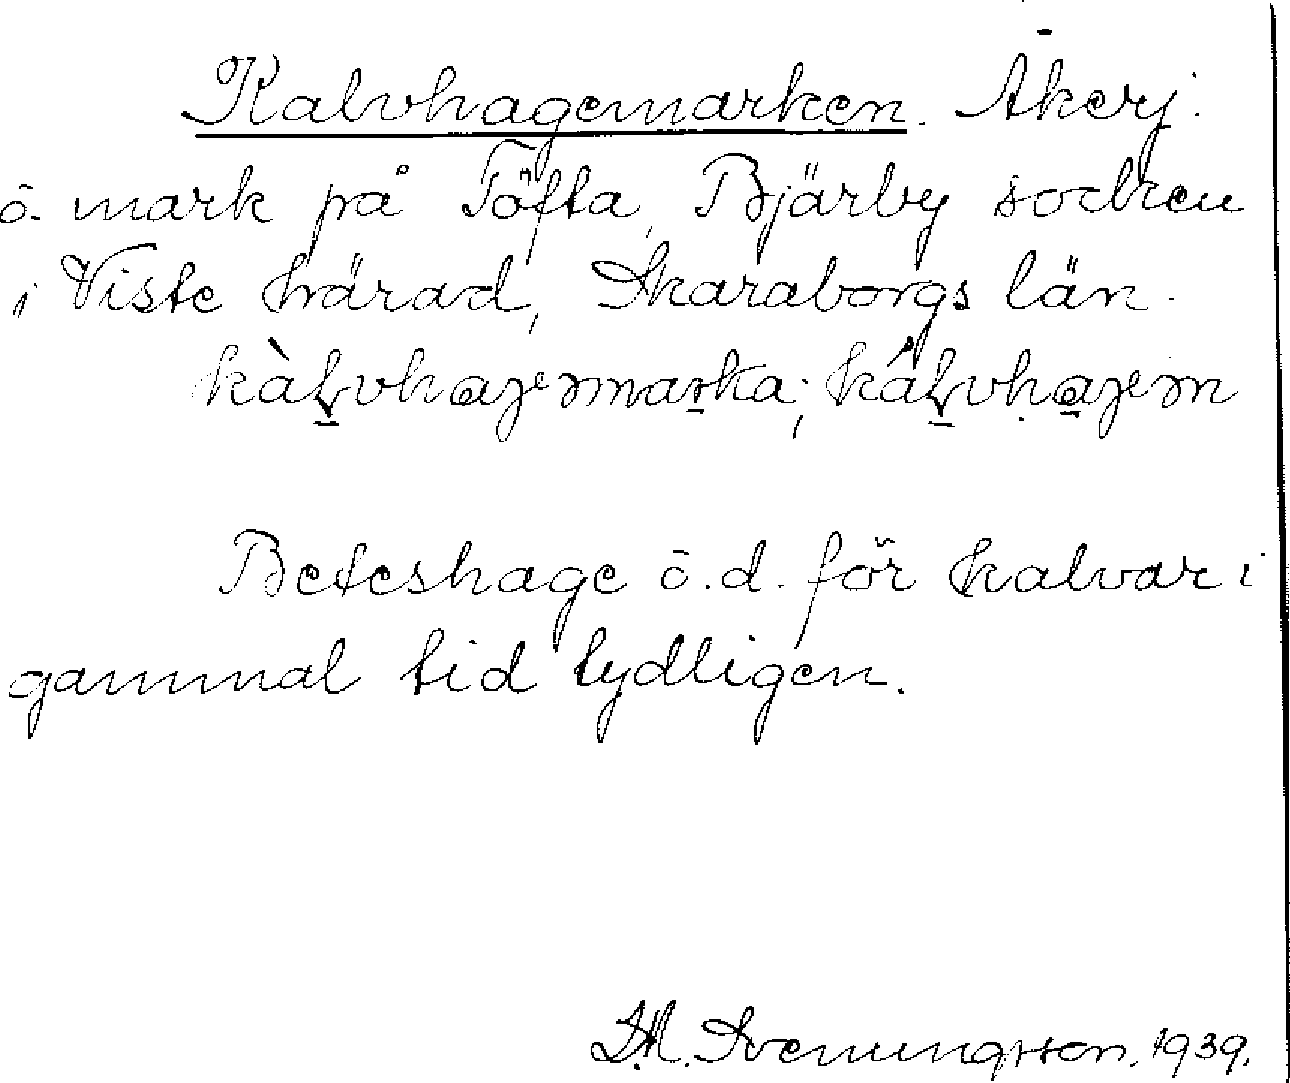 Kalvhagemarken. Åkerj.
o. mark på Töfta, Bjärby socken
i Viste härad, Skaraborgs län.
kàlvhagemarka; kálvhagem
Beteshage o.d. för kalvar i
gammal tid tydligen.
Svenungsson. 1939.